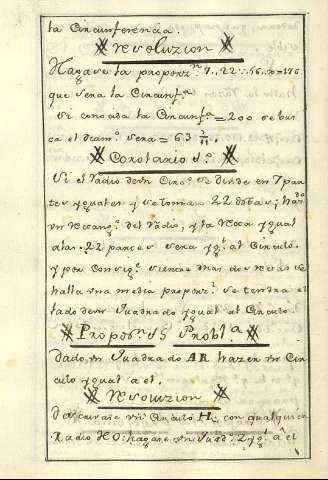 la Circunferencia.
resoluzion
Hagase la proporz.n 7..22::56..x=176
que sera la Circunf.a
Si conozida la Circunf.a = 200 se bus
ca el diam.o sera = 63 7/11.
Corolario 1.o
Si el radio de un Circ.o se divide en 7 par
tes yguales y se toman 22 de estas, ha do
un Rectang.o del radio, y la recta ygual
a las 22 partes sera yg.l al Circulo.
y por consig.te siempre mas dos rectas se
halla una media proporz.l se tendra el
lado de un Quadrado ygual al Circulo.
Propos.n 15 Probl.a
Dado un Quadrado AR hazer un Cir
culo ygual a el.
resoluzion
Descrivase un Circulo H, con qualquier
Radio HO: hagase un Quad.o Z yg.l a el